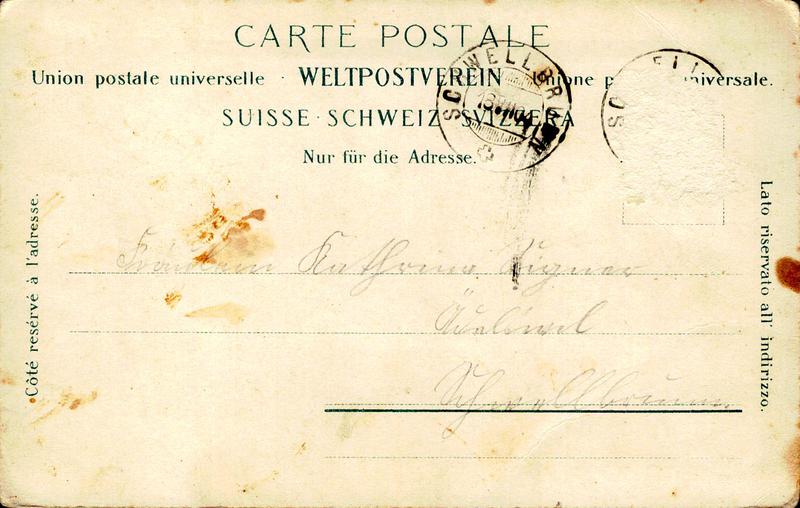 CARTE POSTALE
Union postale universelle · WELTPOSTVEREIN · Unione p niversale.
SUISSE · SCHWEIZ · SVIZZERA
Nur für die Adresse.
SCHWELLBRUNN
SCHWELL
Côté resérvé à l'adresse.
Lato riservato all' indirizzo.
Fräulein Kathrina Signer
Schwellbrunn